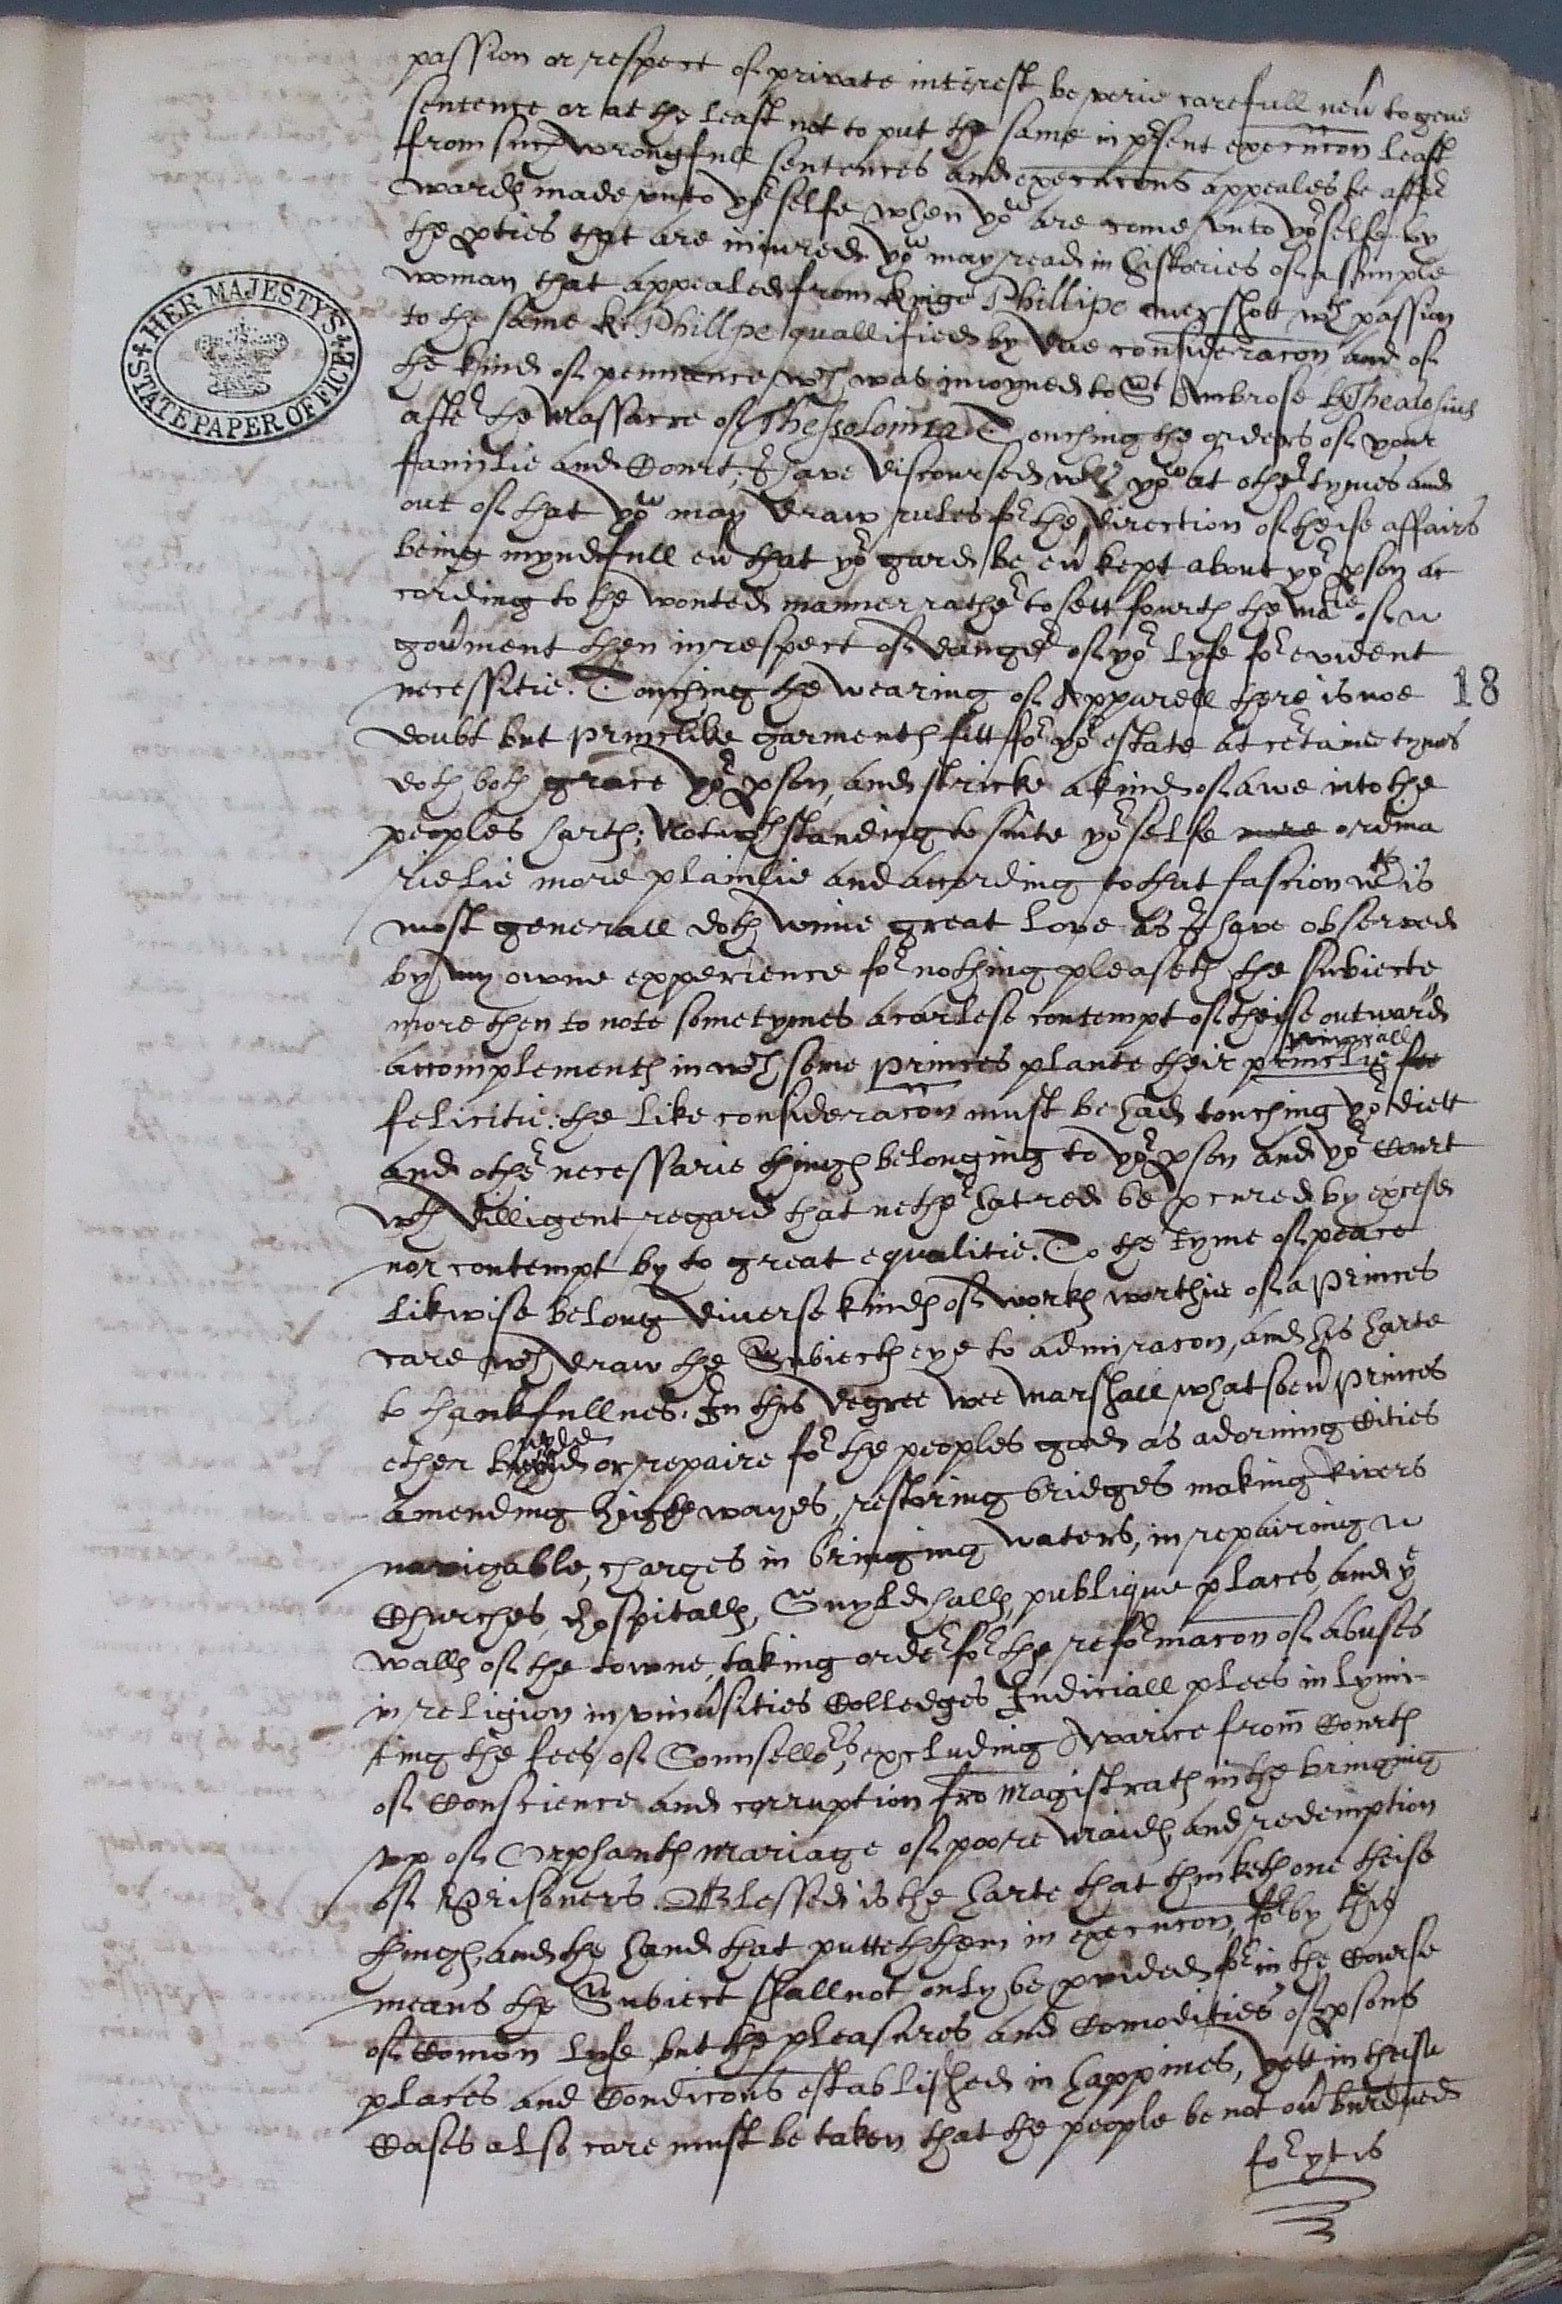 passion or respect of private interest be verie carefull neu[er] to geue
sentence or at the least not to put the same in p[re]sent execucon least
from such wrongfull sentences and execucons appeales be after
wards made vnto yor selfe when you are come vnto yor selfe by
the pties that are iniured you may read in histories of a simple
woman that appealed from kinge Phillipe overshott wth passion
to the same k: Phillpe quallified by due consideracon and of
the kind of pennance wch was inioyned to St Ambrose by Theodosius
after the Massacre of Thessolonica Touching the orders of your
familie and Court; I have discoursed wth you at other tymes and
out of that you may draw rules for the direction of theise affairs
being myndfull eu[er] that yor gard be eu[er] kept about yor pson ac
cording to the wonted manner rather to sett fourth the matie of u
gou[er]ment then in respect of danger of yor lyfe for evident
necessitie. Touching the wearing of Apparell there is noe
doubt but princlike garments fitt for yor estate at certaine tymes
doth both grace yor pson, and stricke a kind of awe into the
peoples harts; Notwthstanding to suite yor selfe more ordina
rielie more plainlie and according to that fascion wch is
most generall doth winne great love as I have observed
by my owne expperience for nothing pleaseth the subiecte
more then to note sometymes a carlese contempt of theise outward
accomplements in wch some princes plante their princlye
felicitie: the like consideracon must be had touching yor diett
and other necessarie things belonging to yor pson and yor Court
wth dilligent regard that nether hatred be pcured by excesse
nor contempt by to great equalitie. To the tyme of peace
likwise belong diuerse kinds of works worthie of a Princes
care wch draw the Subiects eye to admiracon, and his harte
to thankfullnes. In this degree wee marshall whatsoeu[er] Princes
ether build or repaire for the peoples good as adorning Cities
amending highe wayes, restoring bridges making Rivers
navigable, charges in bringing waters, in repairing u
Churches, Hospitalls, Guyld halls, publique places and ye
walls of the towne, taking order for the reformacon of abuses
in religion in vniu[er]sities Colledges Iudiciall plees in lymi-
ting the fees of Counsellors, excluding Avarice from Courts
of Conscience and corruption fro Magistrats in the bringing
vp of Orphants mariage of poore Maids, and redemption
of Prisoners. Blessed is the harte that thinketh one theise
things, and the hand that putteth them in execucon, for by this
means the Subiect shall not only be pvided for in the Course
of Comon lyfe but the pleasures and Comodities of psons
places and Condicons established in happines, yett in theise
Cases also care must be taken that the people be not ou[er] burdned
for yt is
18
HER MAJESTY'S
STATE PAPER OFFICE